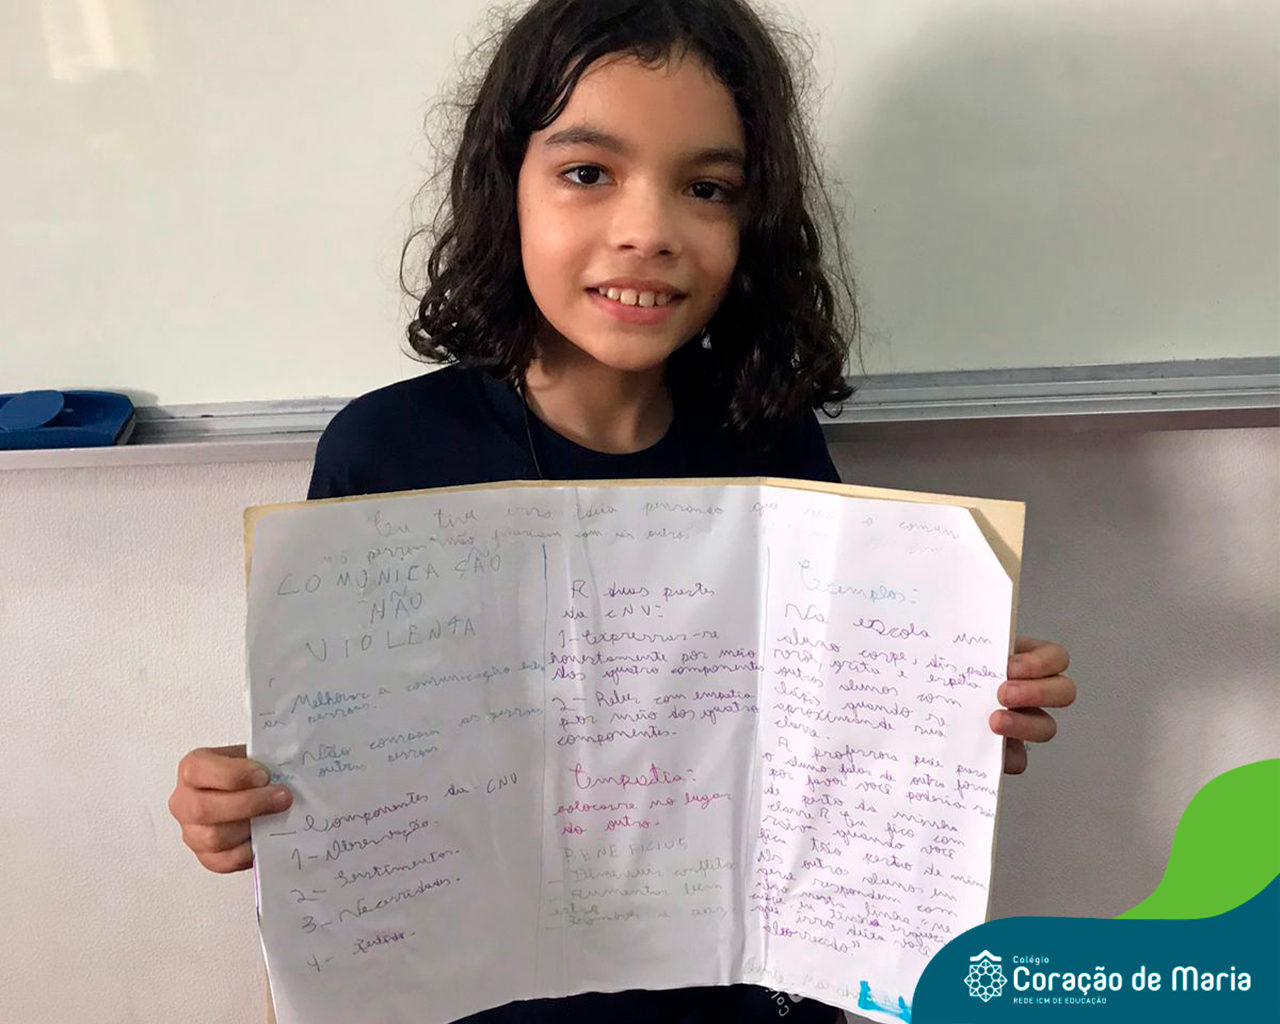 Eu tive isso ideia pensando que sem a comuni
as pessoas não com as outras
COMUNICASÃO
NÃO
VIOLENTA
- Melhorar a comunicação entre
as pessoas.
- Não compara as pessoas
com outras pessoas
- Componentes da CNV
1- Observação.
2- Sentimentos.
3- Necessidades.
4-
A duas partes
da CNV:
1- Expressar-se
honestamente por meio
dos quatro componentes
2- Reber com empatia
por meio dos quatro
componentes.
Empatia:
colocarse no lugar
do outro.
BENEFICIOS
- Diminuir conflito
- Aumentar bem
estar
Exemplos:
Na escola um
aluno corre, diz pala-
vrões, grita e espeta
outros alunos com
lápis quando se
aproximam de sua
classe.
A professora pede para
o aluno falar de outra forma
por favor você poderia
de perto da minha
classe? Eu fico com
raiva quando você
fica tão perto de mim
Os outros alunos em
geral respondem com
algo nesta linha "Me
que eu tinha
que isso deixa você
aborrecido".
Colégio
Coração de Maria
REDE ICM DE EDUCAÇÃO